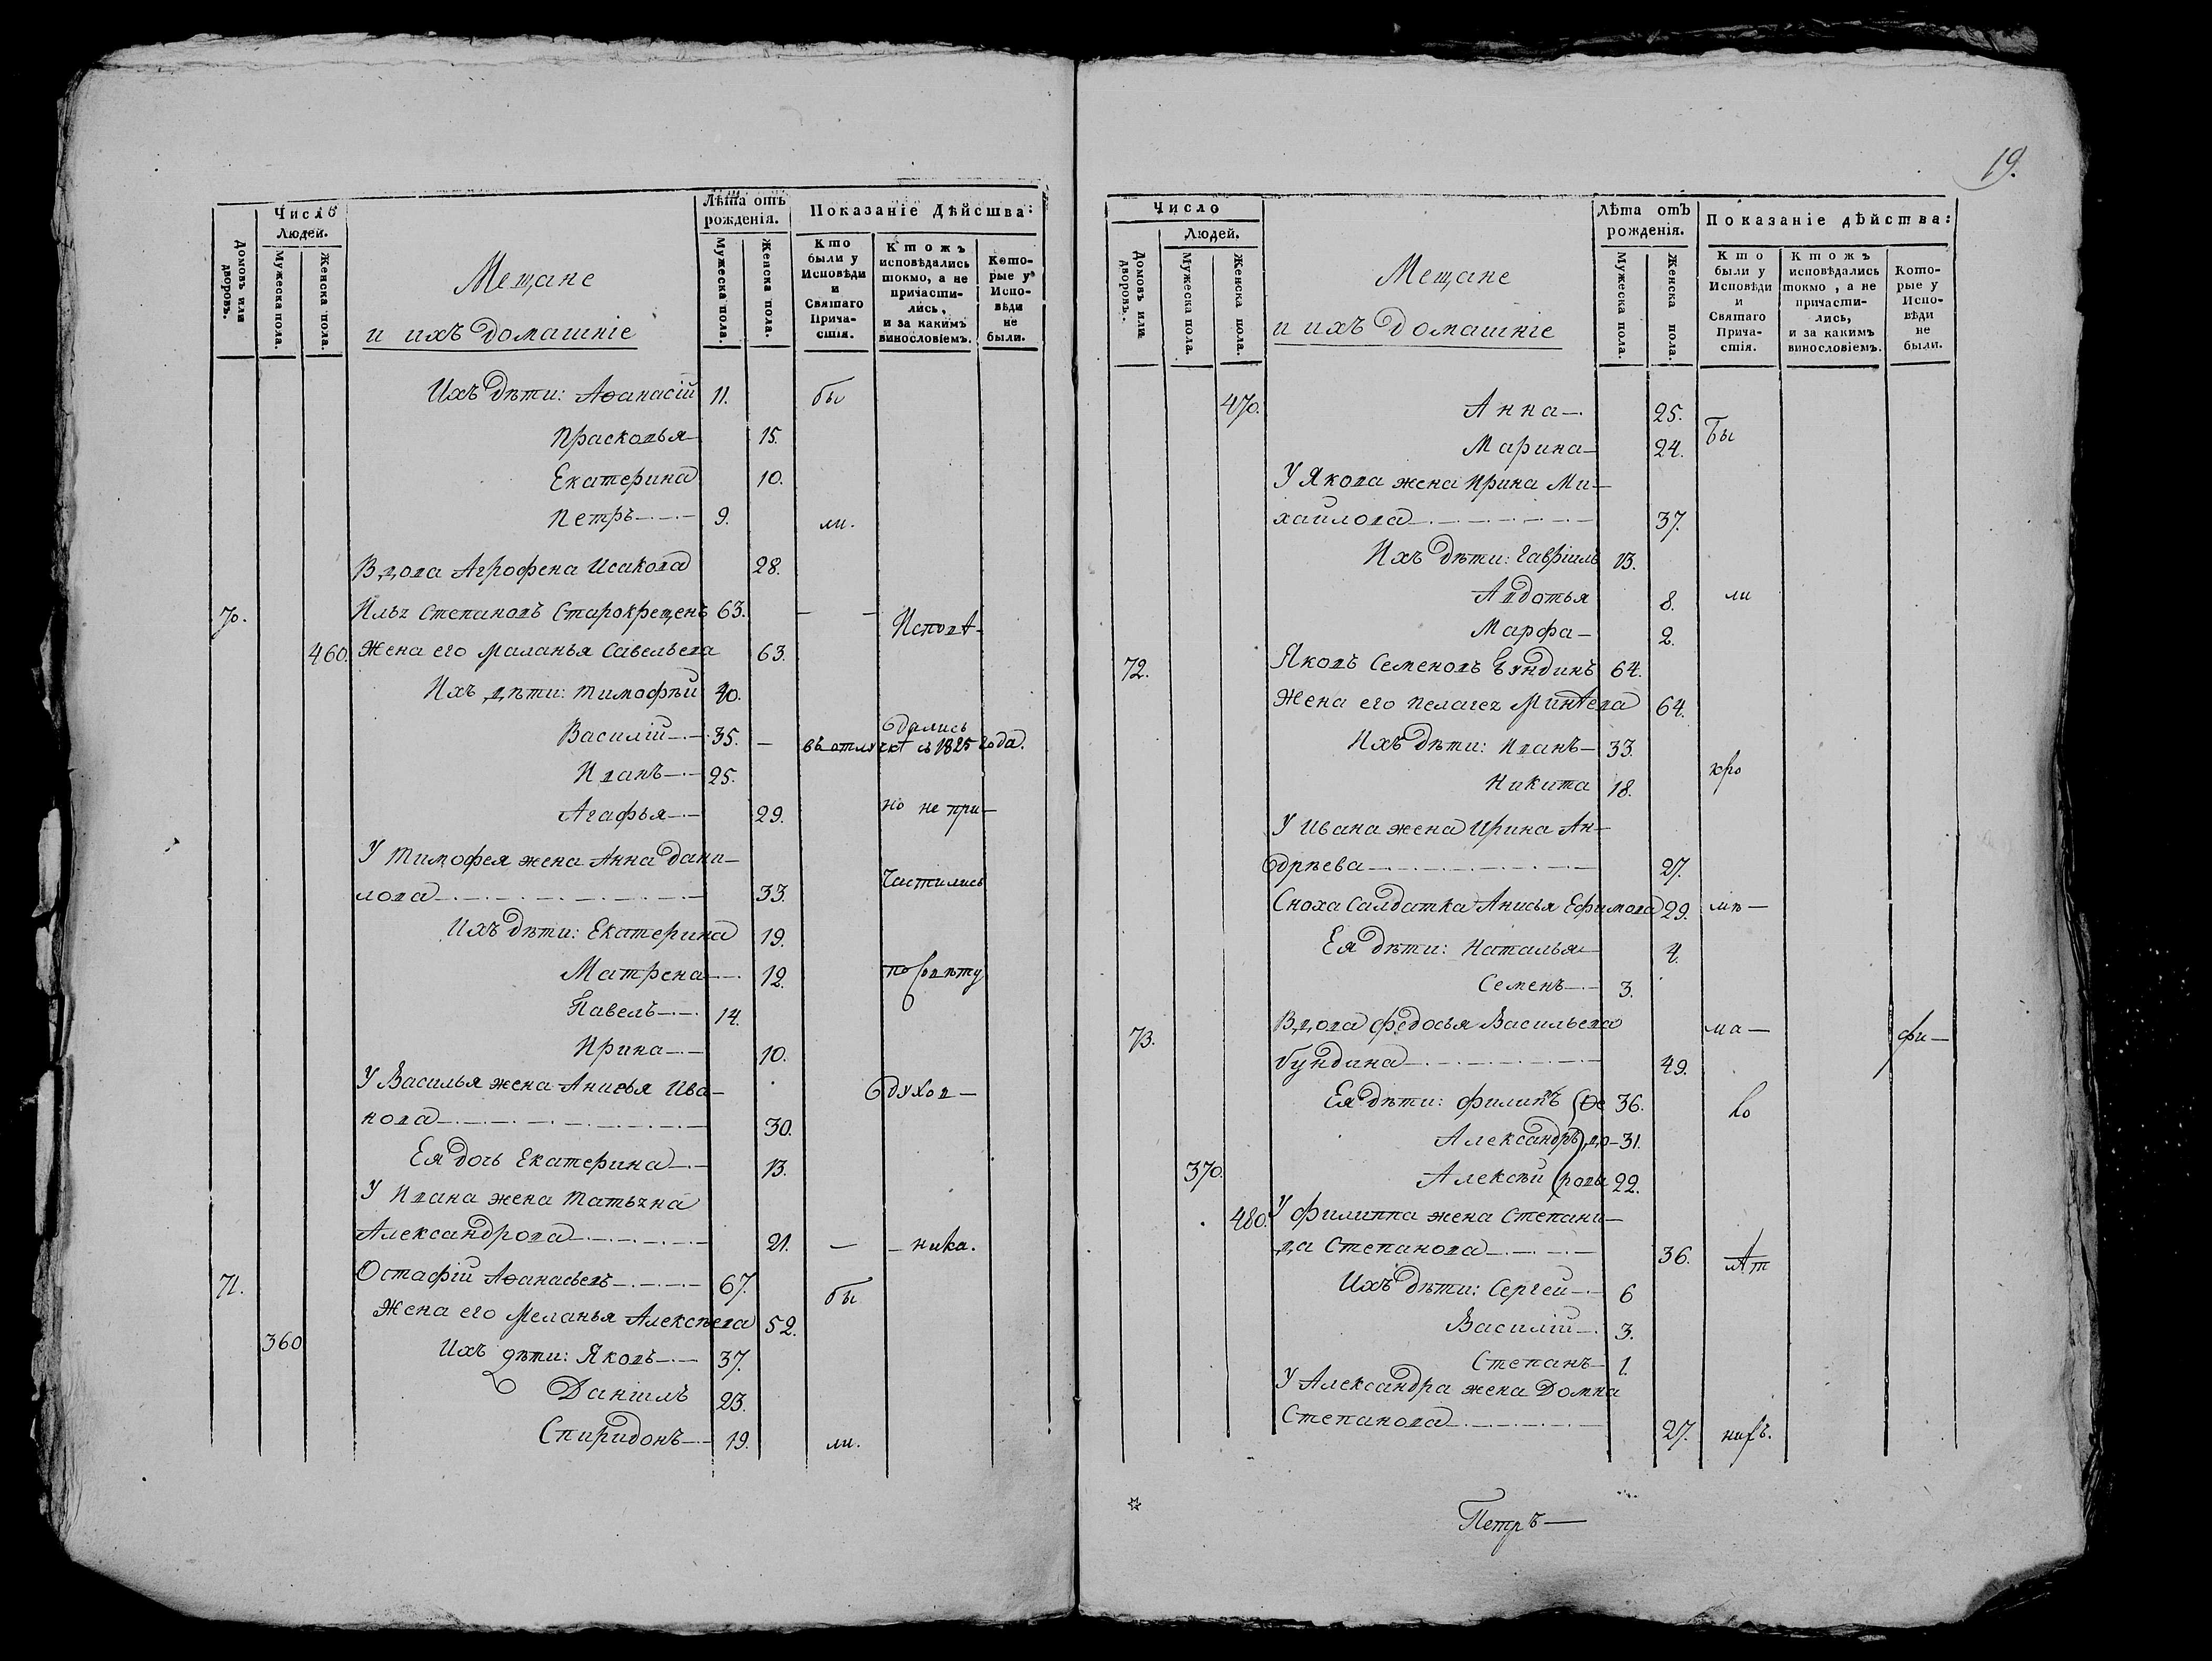 Число Людей.
Лѣта отъ рожденія.
Показаніе Дѣйства:
Домовъ или дворовъ.
Мужеска пола.
Женска пола.
Мещане
и ихъ домашніе
Мужеска пола.
Женска пола.
Кто были у Исповѣди и Святаго Прича-стія.
Ктожъ исповѣдались токмо, а не причасти-лись, и за какимъ винословіемъ.
Кото-рые у Испо-вѣди не были.
Ихъ дѣти: Аѳанасій 11. бы
Прасковья 15.
Екатерина 10.
Петръ 9. ли.
Вдова Агрофена Исакова 28.
70. Илья Степановъ Старокрещенъ 63. Исповѣ-
460. Жена его Маланья Савельева 63.
Ихъ дѣти: Тимофѣй 40.
дались
Василій 35. въ отлучкѣ съ 1825 года.
Иванъ 25.
Агафья 29. но не при-
У Тимофея жена Анна Дани-
лова 33. частились
Ихъ дѣти: Екатерина 19.
Матрена 12. по совѣту
Павелъ 14.
Ирина 10.
У Василья жена Анисья Ива- духов-
нова 30.
Ея дочь Екатерина 13.
У Ивана жена Татьяна
Александрова 21. ника.
71. Остафій Аѳанасьевъ 67. бы
Жена его Меланья Алексѣева 52.
360 Ихъ дѣти: Яковъ 37.
Даніилъ 23.
Спиридонъ 19. ли.
19.
Число Людей.
Лѣта отъ рожденія.
Показаніе дѣйства:
Домовъ или дворовъ.
Мужеска пола.
Женска пола.
Мещане
и ихъ домашніе
Мужеска пола.
Женска пола.
Кто были у Исповѣди и Святаго Прича-стія.
Ктожъ исповѣдались токмо, а не причасти-лись, и за какимъ винословіемъ.
Кото-рые у Испо-вѣди не были.
470. Анна 25.
Бы
Марина 24.
У Якова жена Ирина Ми-
хайлова 37.
Ихъ дѣти: Гавріилъ 13.
Авдотья 8. ли
Марфа 2.
72. Яковъ Семеновъ Бундинъ 64.
Жена его Пелагея Минѣева 64.
Ихъ дѣти: Иванъ 33.
кро
Никита 18.
У Ивана жена Ирина Ан-
дрѣева 27.
Сноха Салдатка Анисья Ефимова 29. мѣ-
Ея дѣти: Наталья 4.
Семенъ 3.
73. Вдова Федосья Васильева ма- фи-
Бундина 49.
Ея дѣти: Филипъ 36. ло
Александръ 31.
370. Алексѣй 22.
480. У Филиппа жена Степани-
да Степанова 36. лѣт
Ихъ дѣти: Сергей 6
Василій 3.
Степанъ 1.
У Александра жена Домна
Степанова 27. нихъ.
Петръ-